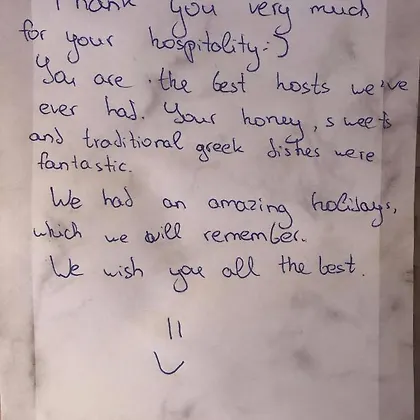 Thank you very much
for your hospitality :)
You are the best hosts we've
ever had. Your honey, sweets
and traditional greek dishes were
fantastic.
We had an amazing holidays,
which we will remember.
We wish you all the best.